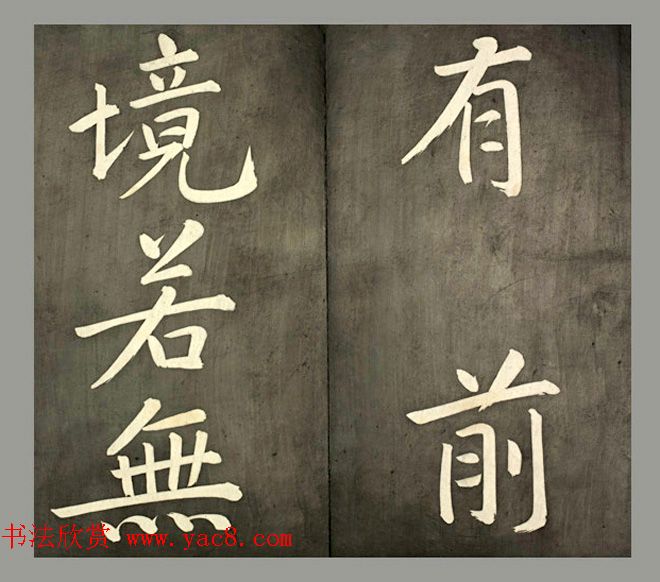 有前
境若無
书法欣赏 www.yac8.com